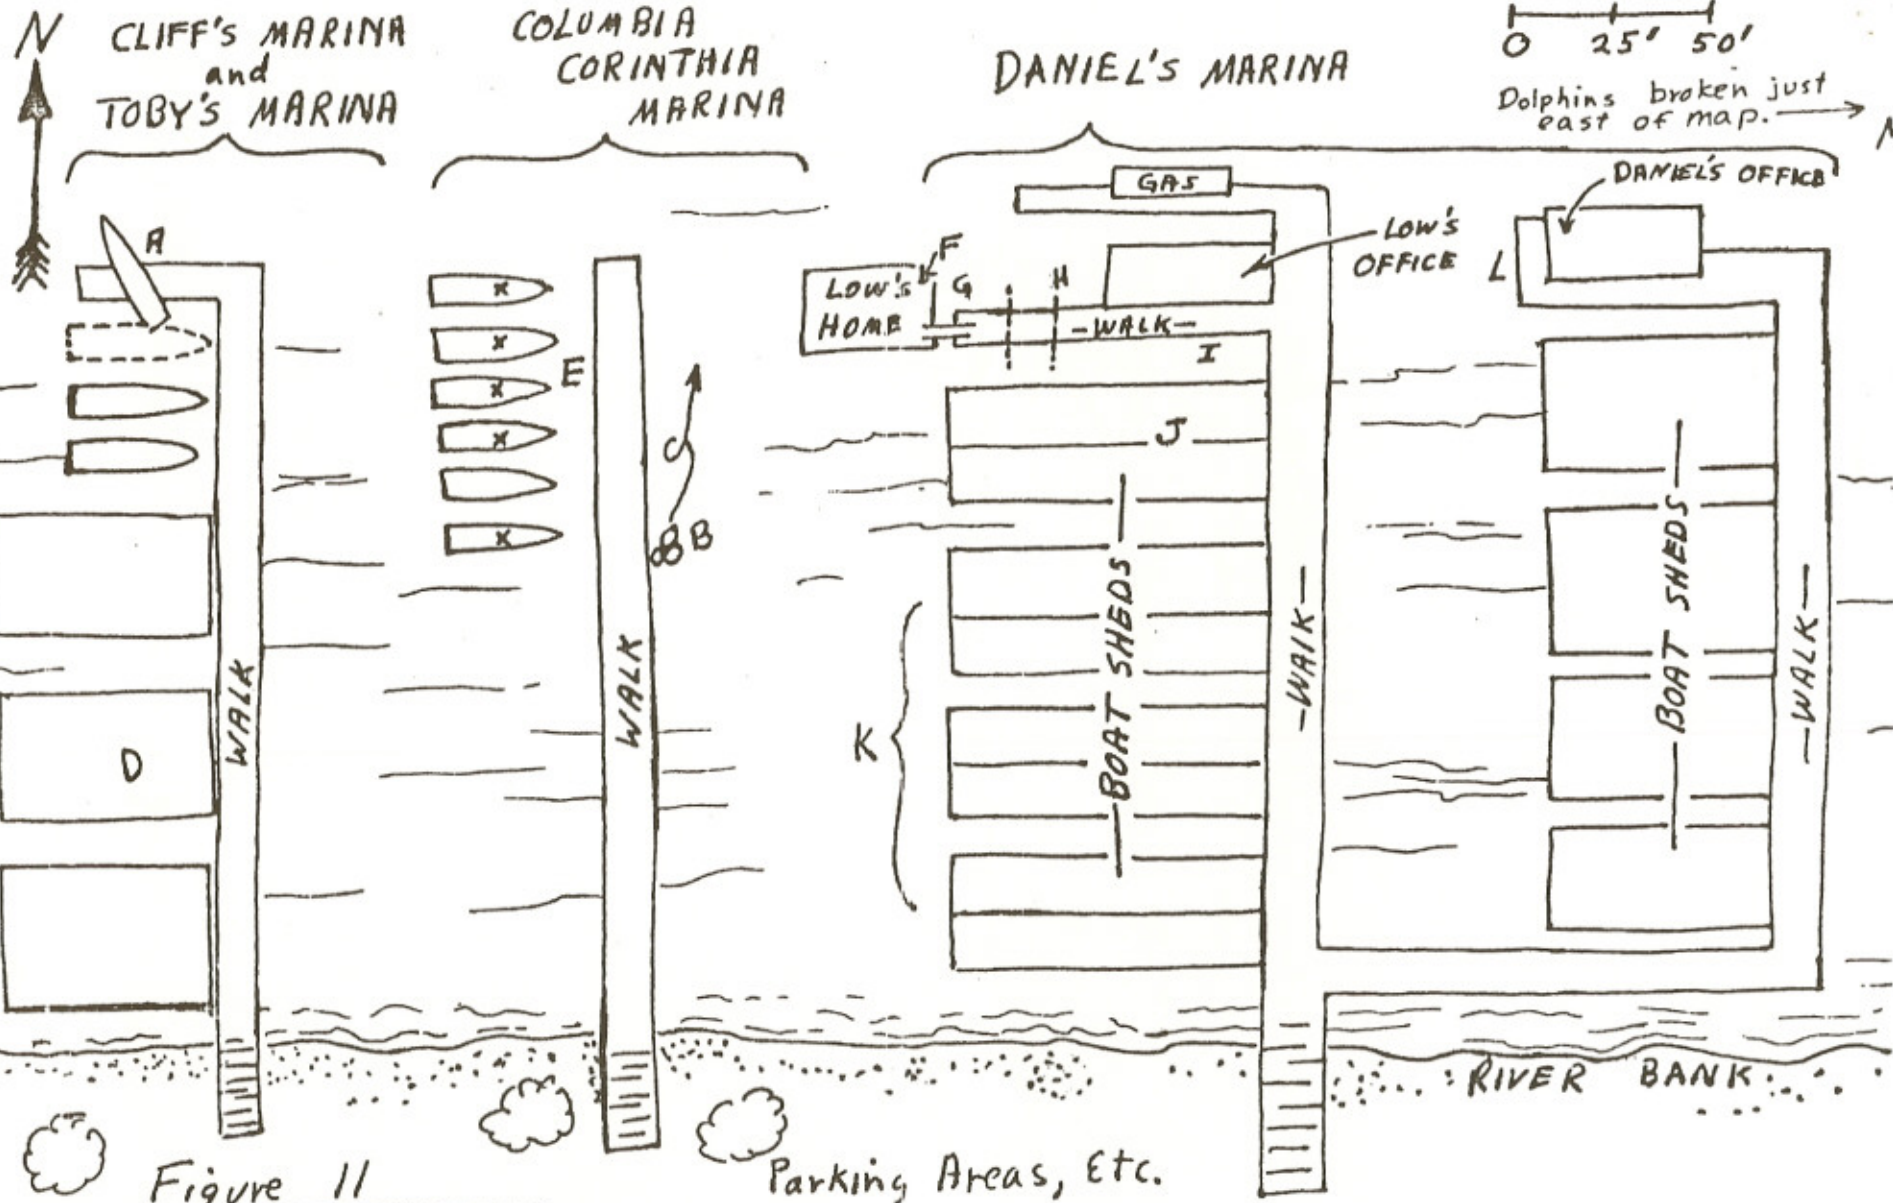 N
CLIFF'S MARINA
and
TOBY'S MARINA
COLUMBIA
CORINTHIA
MARINA
DANIEL'S MARINA
0 25' 50'
Dolphins broken just
east of map.
DANIEL'S OFFICE
GAS
LOW'S
OFFICE
A
F
LOW'S
HOME
G
H
-WALK-
I
L
E
C
B
J
BOAT SHEDS
BOAT SHEDS
K
D
WALK
WALK
-WALK-
-WALK-
RIVER BANK
Figure 11
Parking Areas, Etc.